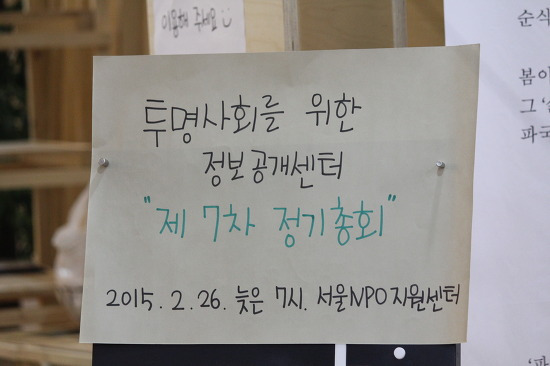 이용해 주세요
투명사회를 위한
정보공개센터
"제 7차 정기총회"
2015. 2. 26. 늦은 7시. 서울NPO지원센터
순식
봄이
그 '슬
파국
'파